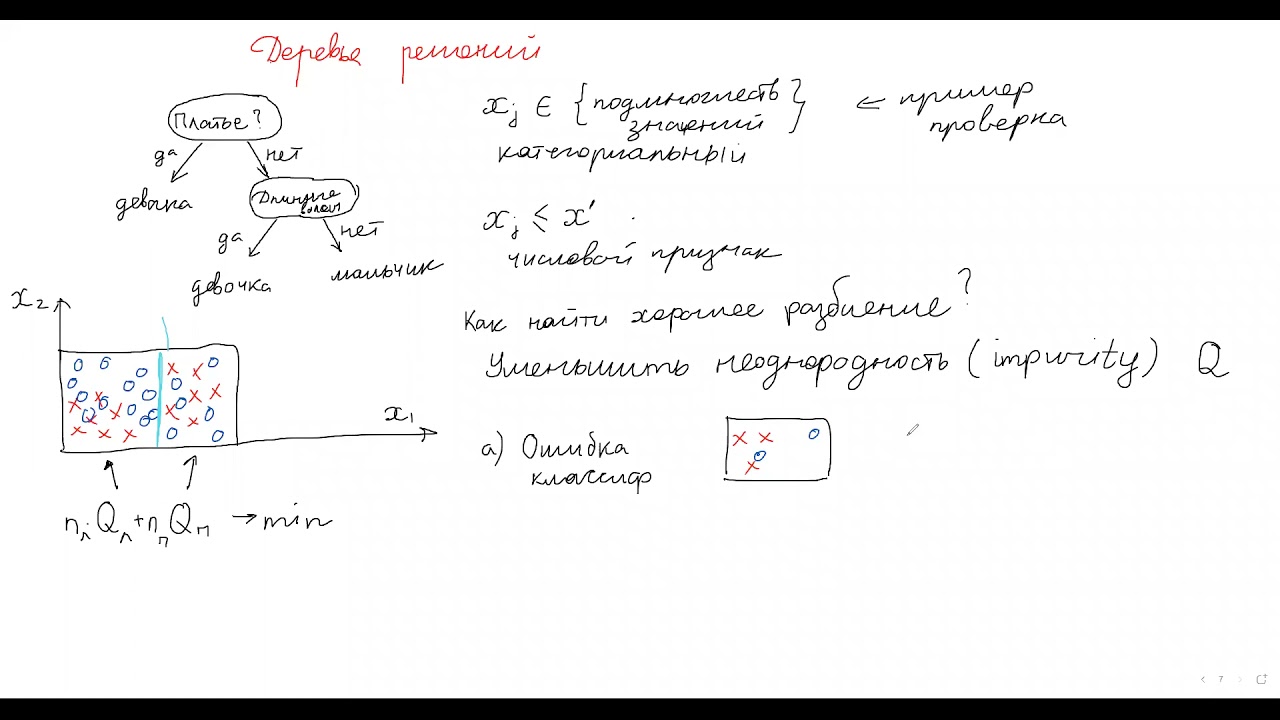 Деревья решений
Платье?
да
нет
девочка
Длинные
волосы
да
нет
девочка
мальчик
x_j ∈ {подмножеств
значений}
категориальный
← пример
проверка
x_j ⩽ x'
числовой признак
Как найти хорошее разбиение?
Уменьшить неоднородность (impurity) Q
x₂
x₁
n_л Q_л + n_п Q_п → min
а) Ошибка
классиф
7